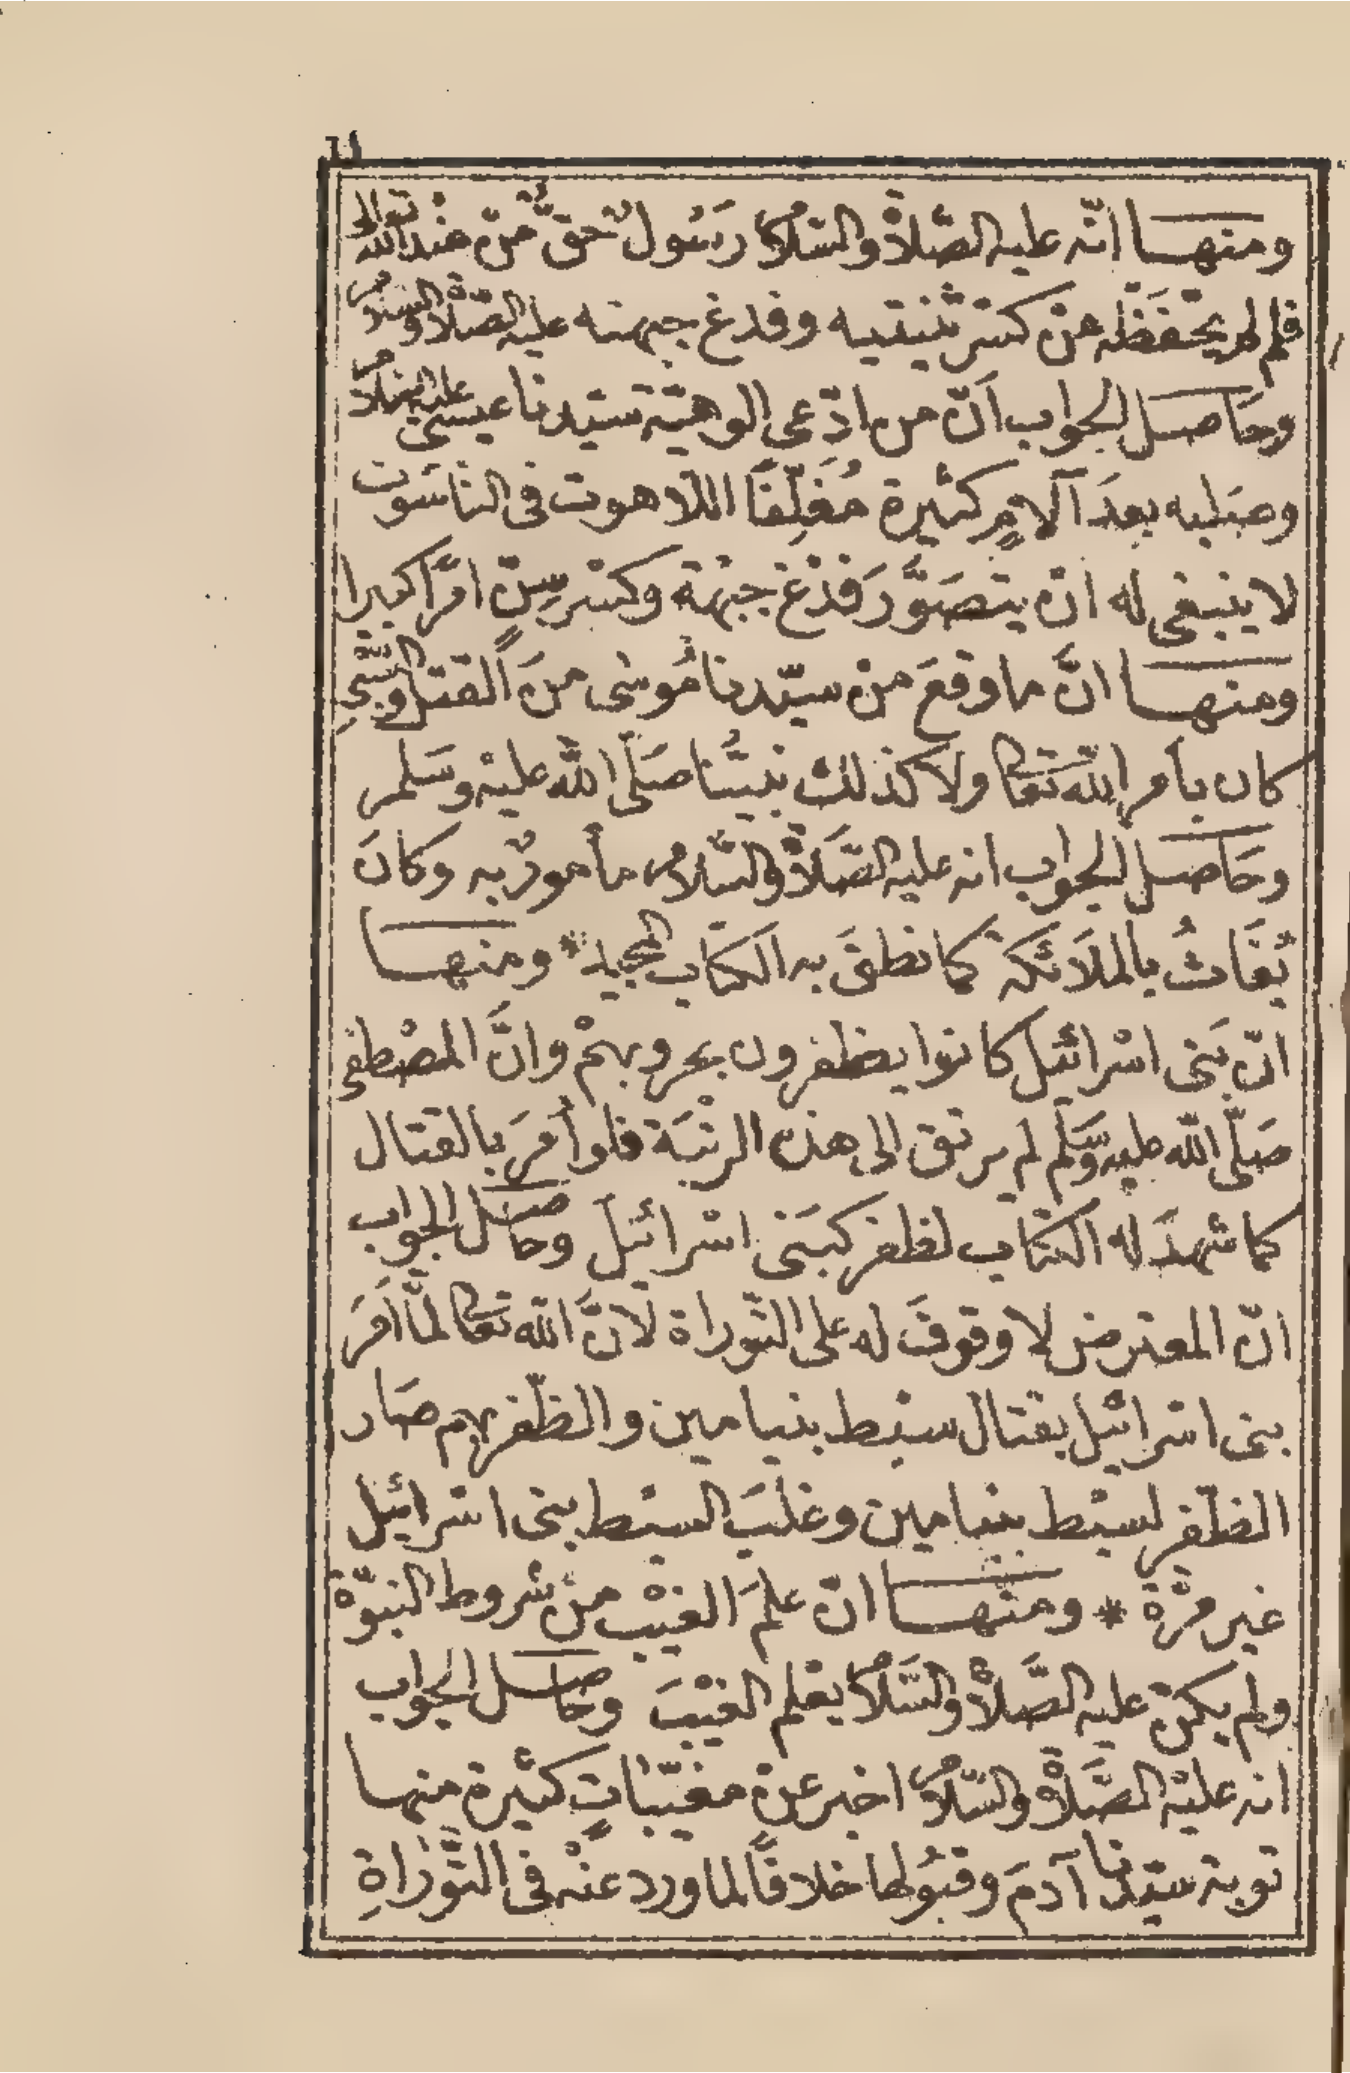 ١١
ومنها انّه عليه الصّلاة والسّلام رَسُولٌ حَقٌّ مِنْ عند الله تعالى
فلم لم يحفظه مِنْ كَسْر ثنيتيه وفدغ جبهته عليه الصّلاة والسّلام
وحَاصل الجواب اَنّ من ادّعى الوهيّة سيّدنا عيسى عليه السّلام
وصَلبه بعدَ آلامٍ كثيرة مُغلِّفًا اللاهوت فى الناسُوت
لا ينبغى له انْ يتصَوَّر فدْغ جبْهة وكسْر سِنّ امْرًا كبيرا
ومنها انَّ ما وقعَ منْ سيّدنا مُوسٰى منَ القتل والسَّبْىِ
كان بأمر الله تعالى ولا كذلك نبيُّنا صَلّى الله عليْه وسَلم
وحَاصل الجواب انه عليه الصَّلاة والسَّلام مأمورٌ به وكانَ
يُغَاثُ بالملَائكة كما نطقَ به الكتَاب المجيد * ومنها
انّ بَنى اسْرائيل كانوا يظفرون بحروبهمْ وانَّ المصْطفى
صَلّى الله عليه وسَلم لم يرتق الى هذه الرتْبَة فلو أُمرَ بالقتال
كما شهدَ له الكتَاب لظفر كبَنى اسْرائيل وحَاصل الجواب
انّ المعترض لا وقوفَ له على التّوراة لأنَّ الله تعالى لمَّا اَمَرَ
بنى اسْرائيل بقتال سبْط بنيامين والظّفر بهم صَار
الظّفر لسبْط بنيامين وغلَبَ السبْط بنى اسْرائيل
غير مرّة * ومنْها انّ علمَ الغيْب منْ شروط النبوّة
ولم يكنْ عليه الصَّلاة والسَّلام يعْلم الغيْبَ وحَاصل الجواب
انه عليْه الصَّلاة والسَّلام اخبر عنْ مغيّباتٍ كثيرة منها
توبة سيّدنا آدمَ وقبُولها خلافًا لما ورد عنْه فى التَّوْرَاةِ